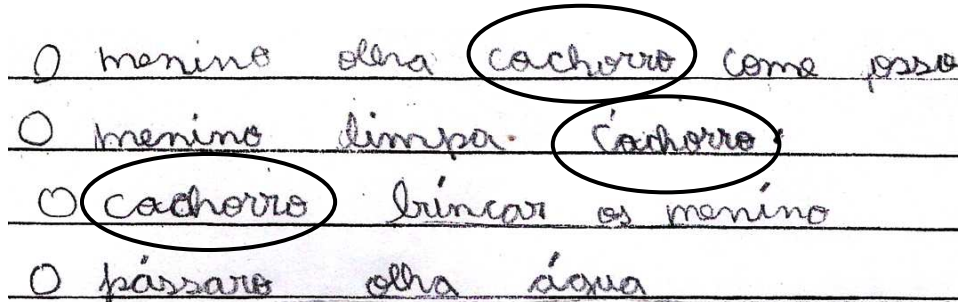 O menino olha cachorro come osso
O menino limpa. Cachorro.
O cachorro brincar os menino
O pássaro olha água